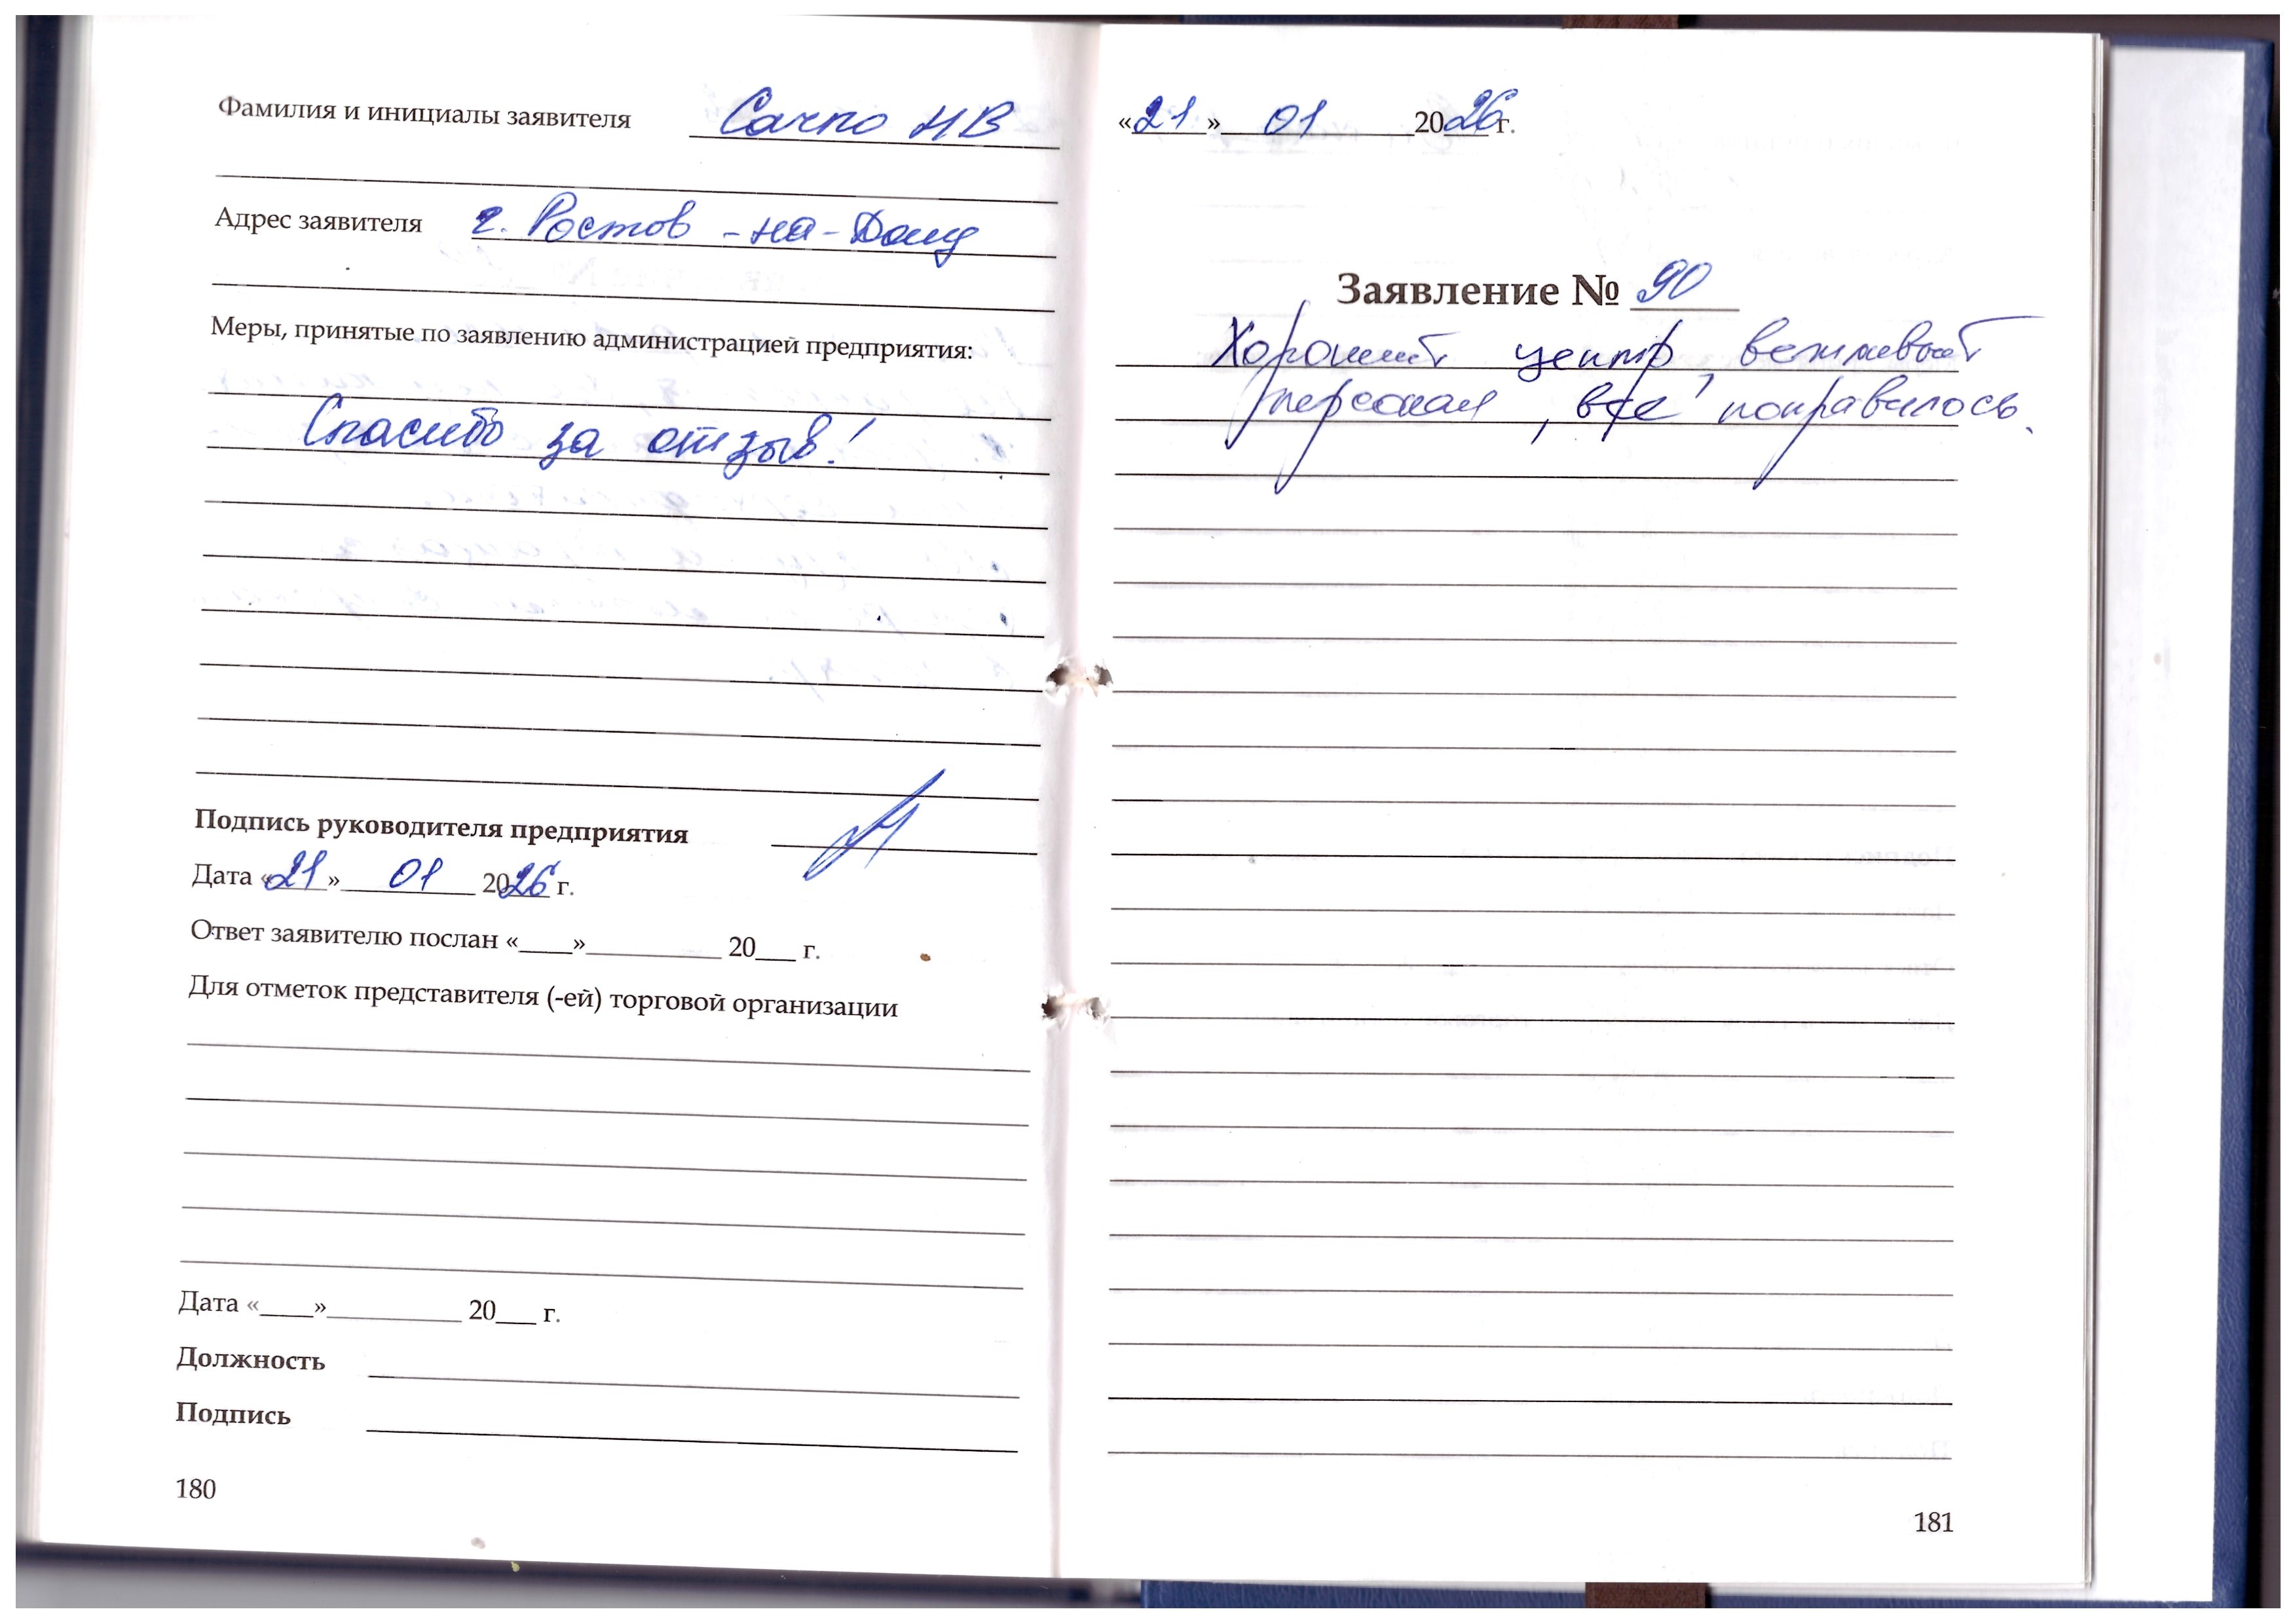 Фамилия и инициалы заявителя Сачко НВ
Адрес заявителя г. Ростов-на-Дону
Меры, принятые по заявлению администрацией предприятия:
Спасибо за отзыв!
Подпись руководителя предприятия
Дата «21» 01 2026 г.
Ответ заявителю послан «____»__________ 20___ г.
Для отметок представителя (-ей) торговой организации
Дата «____»__________ 20___ г.
Должность
Подпись
180
«21» 01 2026 г.
Заявление № 90
Хороший центр, вежливый
персонал, все понравилось.
181